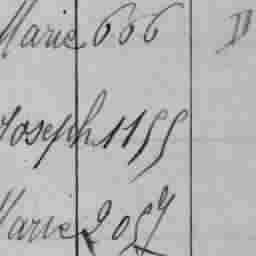 Marie 666
Joseph 1155
Marie 2057